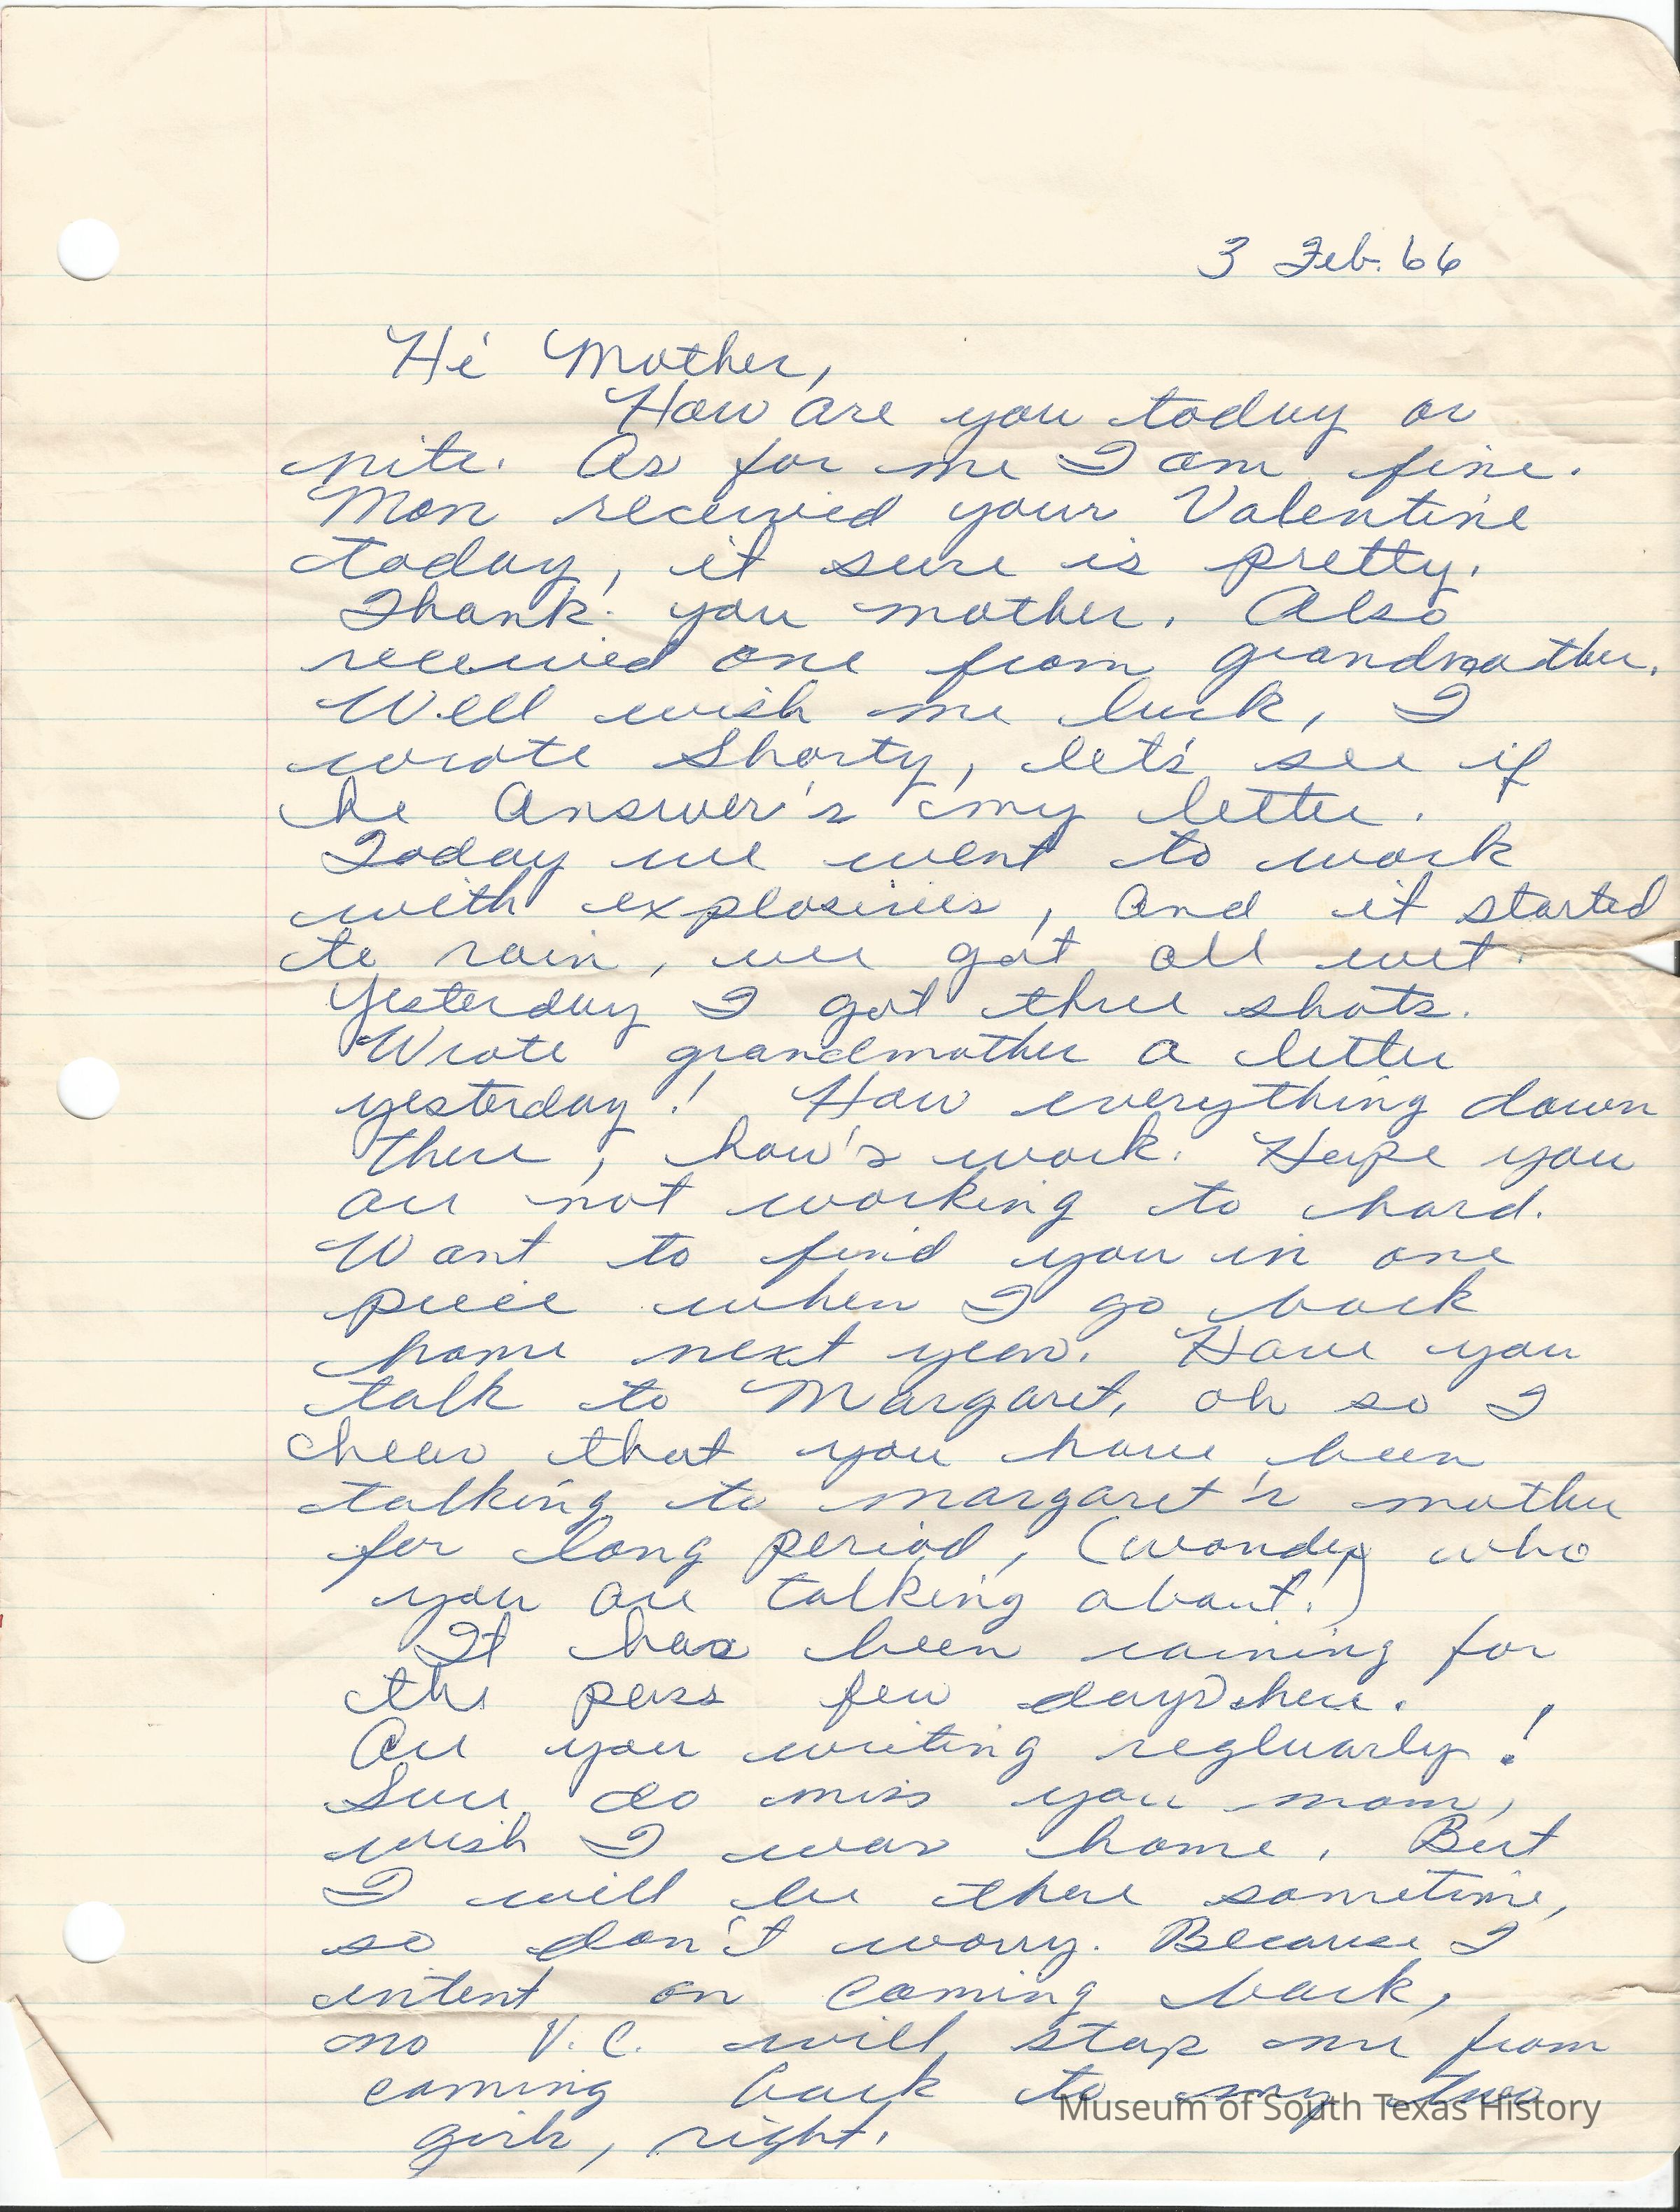 3 Feb. 66
Hi Mother,
How are you today or
nite. As for me I am fine.
Mon received your Valentine
today, it sure is pretty.
Thank you mother. Also
received one from grandmother.
Well wish me luck, I
wrote Shorty, let's see if
he Answer's my letter.
Today we went to work
with explosives, And it started
to rain, we got all wet.
Yesterday I got three shots.
Wrote grandmother a letter
yesterday! How everything down
there, how's work. Hope you
are not working to hard.
Want to find you in one
piece when I go back
home next year. Have you
talk to Margaret, oh so I
hear that you have been
talking to margaret's mother
for long period, (wonder who
you are talking about.)
It has been raining for
the pass few days here.
Are you writing regluarly!
Sure do miss you mom,
wish I was home. But
I will be there sometime,
so don't worry. Because I
intent on coming back,
no V.C. will stop me from
coming back to my two
girls, right.
Museum of South Texas History